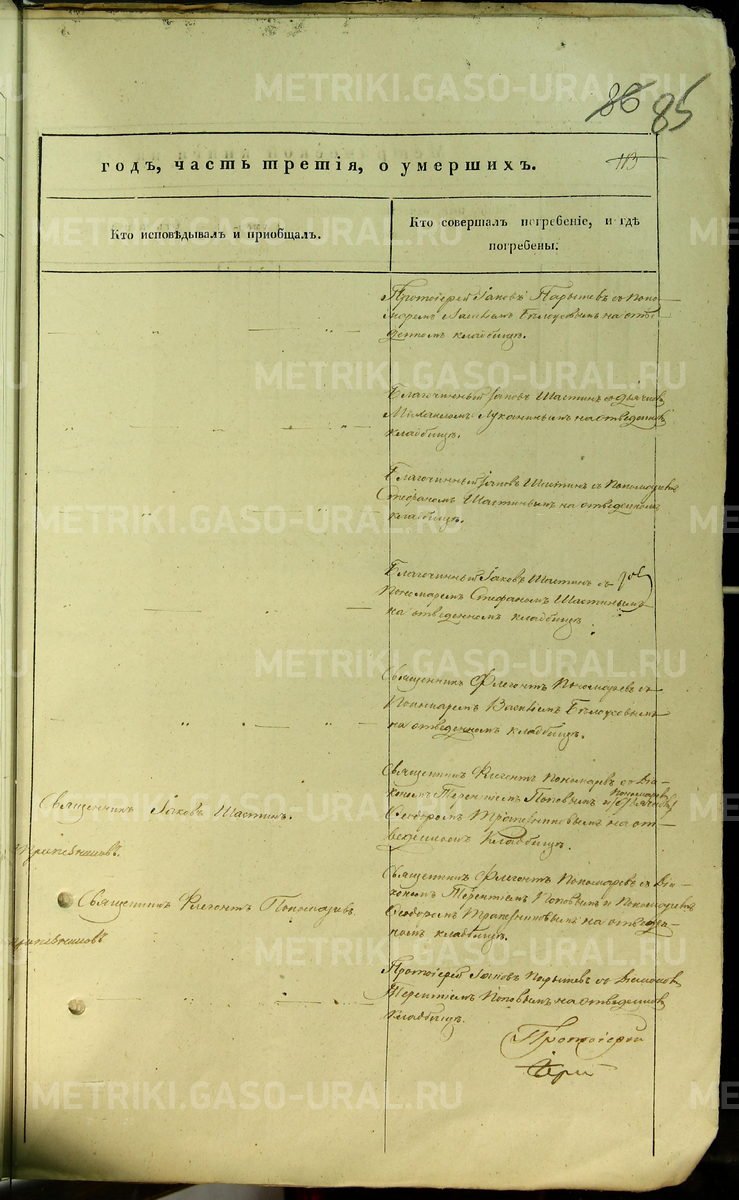 86 85
113
годъ, часть третія, о умершихъ.
Кто исповѣдывалъ и пріобщалъ.
Кто совершалъ погребеніе, и гдѣ
погребены:
Протоіерей Іаковъ Парышевъ съ Поно-
маремъ Бѣлоусовымъ на отве-
денномъ кладбищѣ.
Благочинный Іаковъ Шастинъ съ Дьячкомъ
Михаиломъ Луканинымъ на отведенномъ
кладбищѣ.
Благочинный Іаковъ Шастинъ съ Пономаремъ
Стефаномъ Шастинымъ на отведенномъ
кладбищѣ.
Благочинный Іаковъ Шастинъ съ
Пономаремъ Стефаномъ Шастинымъ
на отведенномъ кладбищѣ.
Священникъ Флегонтъ Пономаревъ съ
Пономаремъ Бѣлоусовымъ
на отведенномъ кладбищѣ.
Священникъ Іаковъ Шастинъ.
Священникъ Флегонтъ Пономаревъ съ Діа-
кономъ Терентіемъ Поповымъ и Пономаремъ
Ѳеодоромъ на от-
веденномъ кладбищѣ.
Священникъ Флегонтъ Пономаревъ.
Священникъ Флегонтъ Пономаревъ съ Діа-
кономъ Терентіемъ Поповымъ и Пономаремъ
Ѳеодоромъ на отведен-
номъ кладбищѣ.
Протоіерей Іаковъ Парышевъ съ Діакономъ
Терентіемъ Поповымъ на отведенномъ
кладбищѣ.
Протоіерей
METRIKI.GASO-URAL.RU